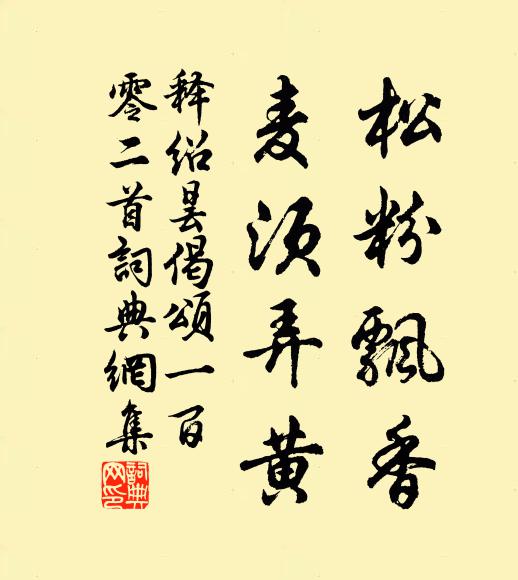 松粉飘香
麦须弄黄
释绍昙偈颂一百
零二首詞典網集
詞典網印